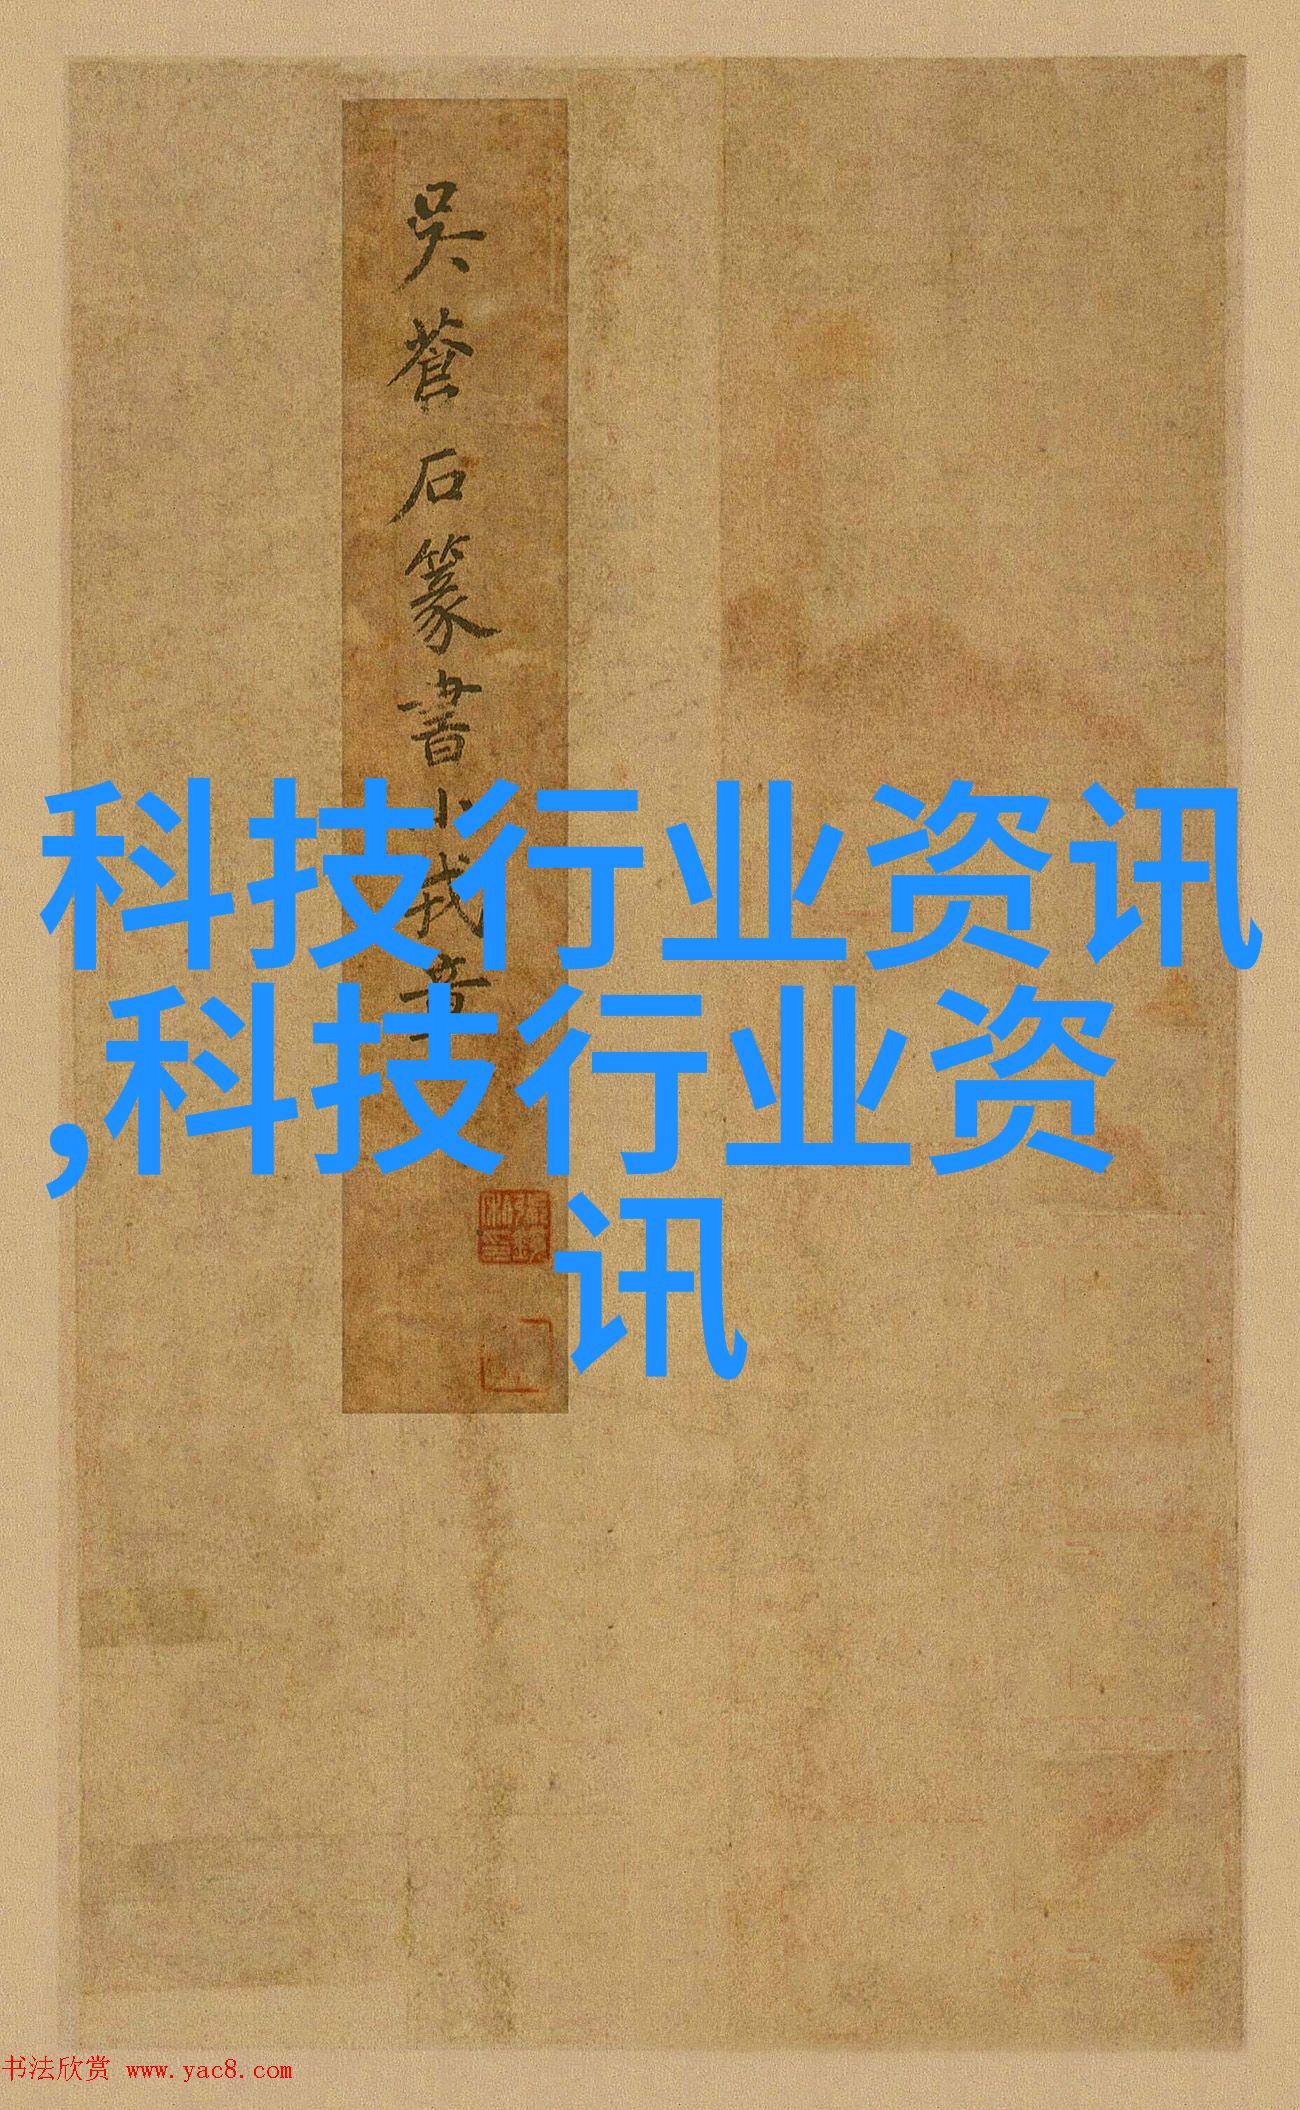 吳蒼石篆書小戎
科技行业资讯
,科技行业资
讯
书法欣赏 www.yac8.com